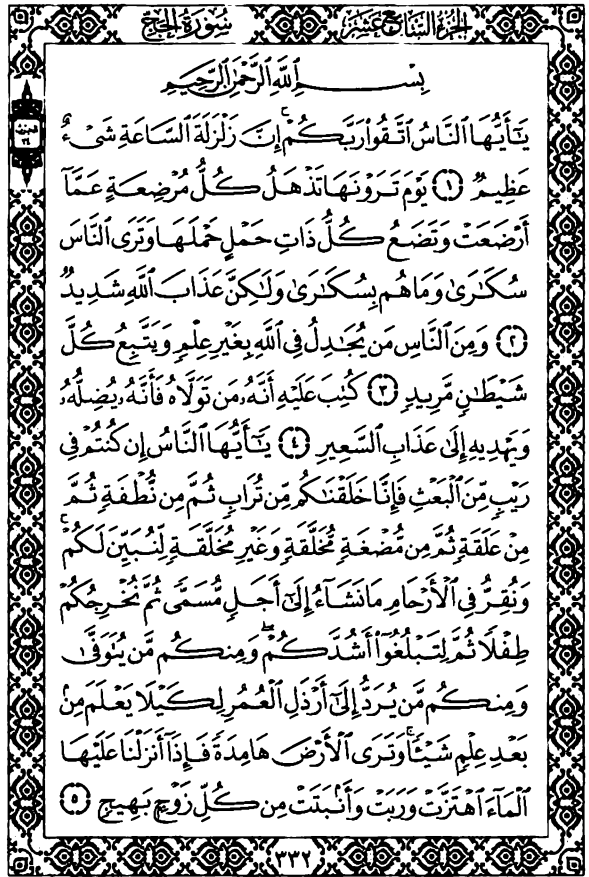 سُورَةُ الحَجِّ
الجُزءُ السَّابِعَ عَشَرَ
بِسْمِ ٱللَّهِ ٱلرَّحْمَٰنِ ٱلرَّحِيمِ
يَٰٓأَيُّهَا ٱلنَّاسُ ٱتَّقُوا۟ رَبَّكُمْ ۚ إِنَّ زَلْزَلَةَ ٱلسَّاعَةِ شَىْءٌ
عَظِيمٌ ١ يَوْمَ تَرَوْنَهَا تَذْهَلُ كُلُّ مُرْضِعَةٍ عَمَّآ
أَرْضَعَتْ وَتَضَعُ كُلُّ ذَاتِ حَمْلٍ حَمْلَهَا وَتَرَى ٱلنَّاسَ
سُكَٰرَىٰ وَمَا هُم بِسُكَٰرَىٰ وَلَٰكِنَّ عَذَابَ ٱللَّهِ شَدِيدٌ
٢ وَمِنَ ٱلنَّاسِ مَن يُجَٰدِلُ فِى ٱللَّهِ بِغَيْرِ عِلْمٍ وَيَتَّبِعُ كُلَّ
شَيْطَٰنٍ مَّرِيدٍ ٣ كُتِبَ عَلَيْهِ أَنَّهُۥ مَن تَوَلَّاهُ فَأَنَّهُۥ يُضِلُّهُۥ
وَيَهْدِيهِ إِلَىٰ عَذَابِ ٱلسَّعِيرِ ٤ يَٰٓأَيُّهَا ٱلنَّاسُ إِن كُنتُمْ فِى
رَيْبٍ مِّنَ ٱلْبَعْثِ فَإِنَّا خَلَقْنَٰكُم مِّن تُرَابٍ ثُمَّ مِن نُّطْفَةٍ ثُمَّ
مِنْ عَلَقَةٍ ثُمَّ مِن مُّضْغَةٍ مُّخَلَّقَةٍ وَغَيْرِ مُخَلَّقَةٍ لِّنُبَيِّنَ لَكُمْ ۚ
وَنُقِرُّ فِى ٱلْأَرْحَامِ مَا نَشَآءُ إِلَىٰٓ أَجَلٍ مُّسَمًّى ثُمَّ نُخْرِجُكُمْ
طِفْلًا ثُمَّ لِتَبْلُغُوٓا۟ أَشُدَّكُمْ ۖ وَمِنكُم مَّن يُتَوَفَّىٰ
وَمِنكُم مَّن يُرَدُّ إِلَىٰٓ أَرْذَلِ ٱلْعُمُرِ لِكَيْلَا يَعْلَمَ مِنۢ
بَعْدِ عِلْمٍ شَيْـًٔا ۚ وَتَرَى ٱلْأَرْضَ هَامِدَةً فَإِذَآ أَنزَلْنَا عَلَيْهَا
ٱلْمَآءَ ٱهْتَزَّتْ وَرَبَتْ وَأَنۢبَتَتْ مِن كُلِّ زَوْجٍۭ بَهِيجٍ ٥
٣٣٢